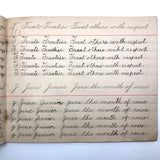 T Treat Treatise Treat others with respect
T Treats Treatise Treat others with respect
T Treats Treatise Treat others with respect.
T Treats Treatise Treat others with respect.
T Treats Treatise Treat others with respect.
T Treats Treatise Treat others with respect.
J June Junior June the month of roses
J June Junior June the month of roses
J June Junior June the month of roses
J June Junior June the month of roses
J June Junior June the month of roses